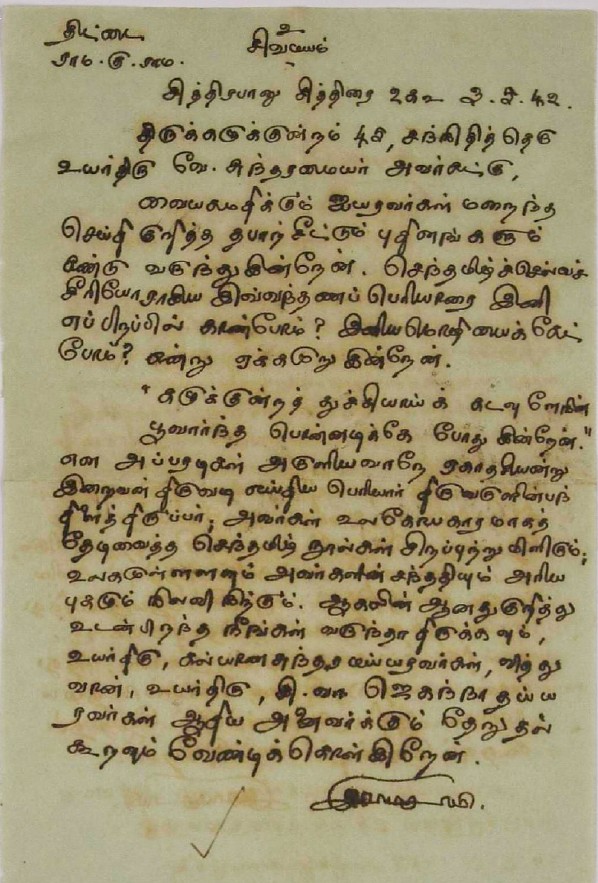 திட்டை
உ
சிவமயம்
ராம. கு. ராம.
சித்திரபானு சித்திரை உக௨ 3. 5. 42.
திருக்கழுக்குன்றம் 45, சந்நிதித் தெரு
உயர்திரு வே. சுந்தரமையர் அவர்கட்கு,
வையகமதிக்கும் ஐயரவர்கள் மறைந்த
செய்தி குறித்த தபாற் சீட்டும் புதினங்களும்
கண்டு வருந்துகின்றேன். செந்தமிழ்ச் செல்வச்
சீரியோராகிய இவ்வந்தணப் பெரியாரை இனி
எப்பிறப்பில் காண்போம்? இனியமொழியைக் கேட்
போம்? என்று ஏக்கமுறுகின்றேன்.
"கழுக்குன்றத் துச்சியாய்க் கடவு ளேநின்
பூவார்ந்த பொன்னடிக்கே போதுகின்றேன்."
என அப்பரடிகள் அருளியவாறே ஏகாதசியன்று
இறைவன் திருவடி எய்திய பெரியார் திருவருளின்பந்
திளைத்திருப்பர்; அவர்கள் உலகோபகாரமாகத்
தேடிவைத்த செந்தமிழ் நூல்கள் சிறப்புற்று மிளிரும்;
உலகமுள்ளளவும் அவர்களின் சந்ததியும் அரிய
புகழும் நிலவி நிற்கும். ஆகலின் ஆனதுகுறித்து
உடன்பிறந்த நீங்கள் வருந்தாதிருக்கவும்,
உயர்திரு, கல்யாணசுந்தரமய்யரவர்கள், வித்து
வான், உயர்திரு, கி. வா. ஜெகந்நாதய்ய
ரவர்கள் ஆகிய அனைவர்க்கும் தேறுதல்
கூறவும் வேண்டிக்கொள்கிறேன்.